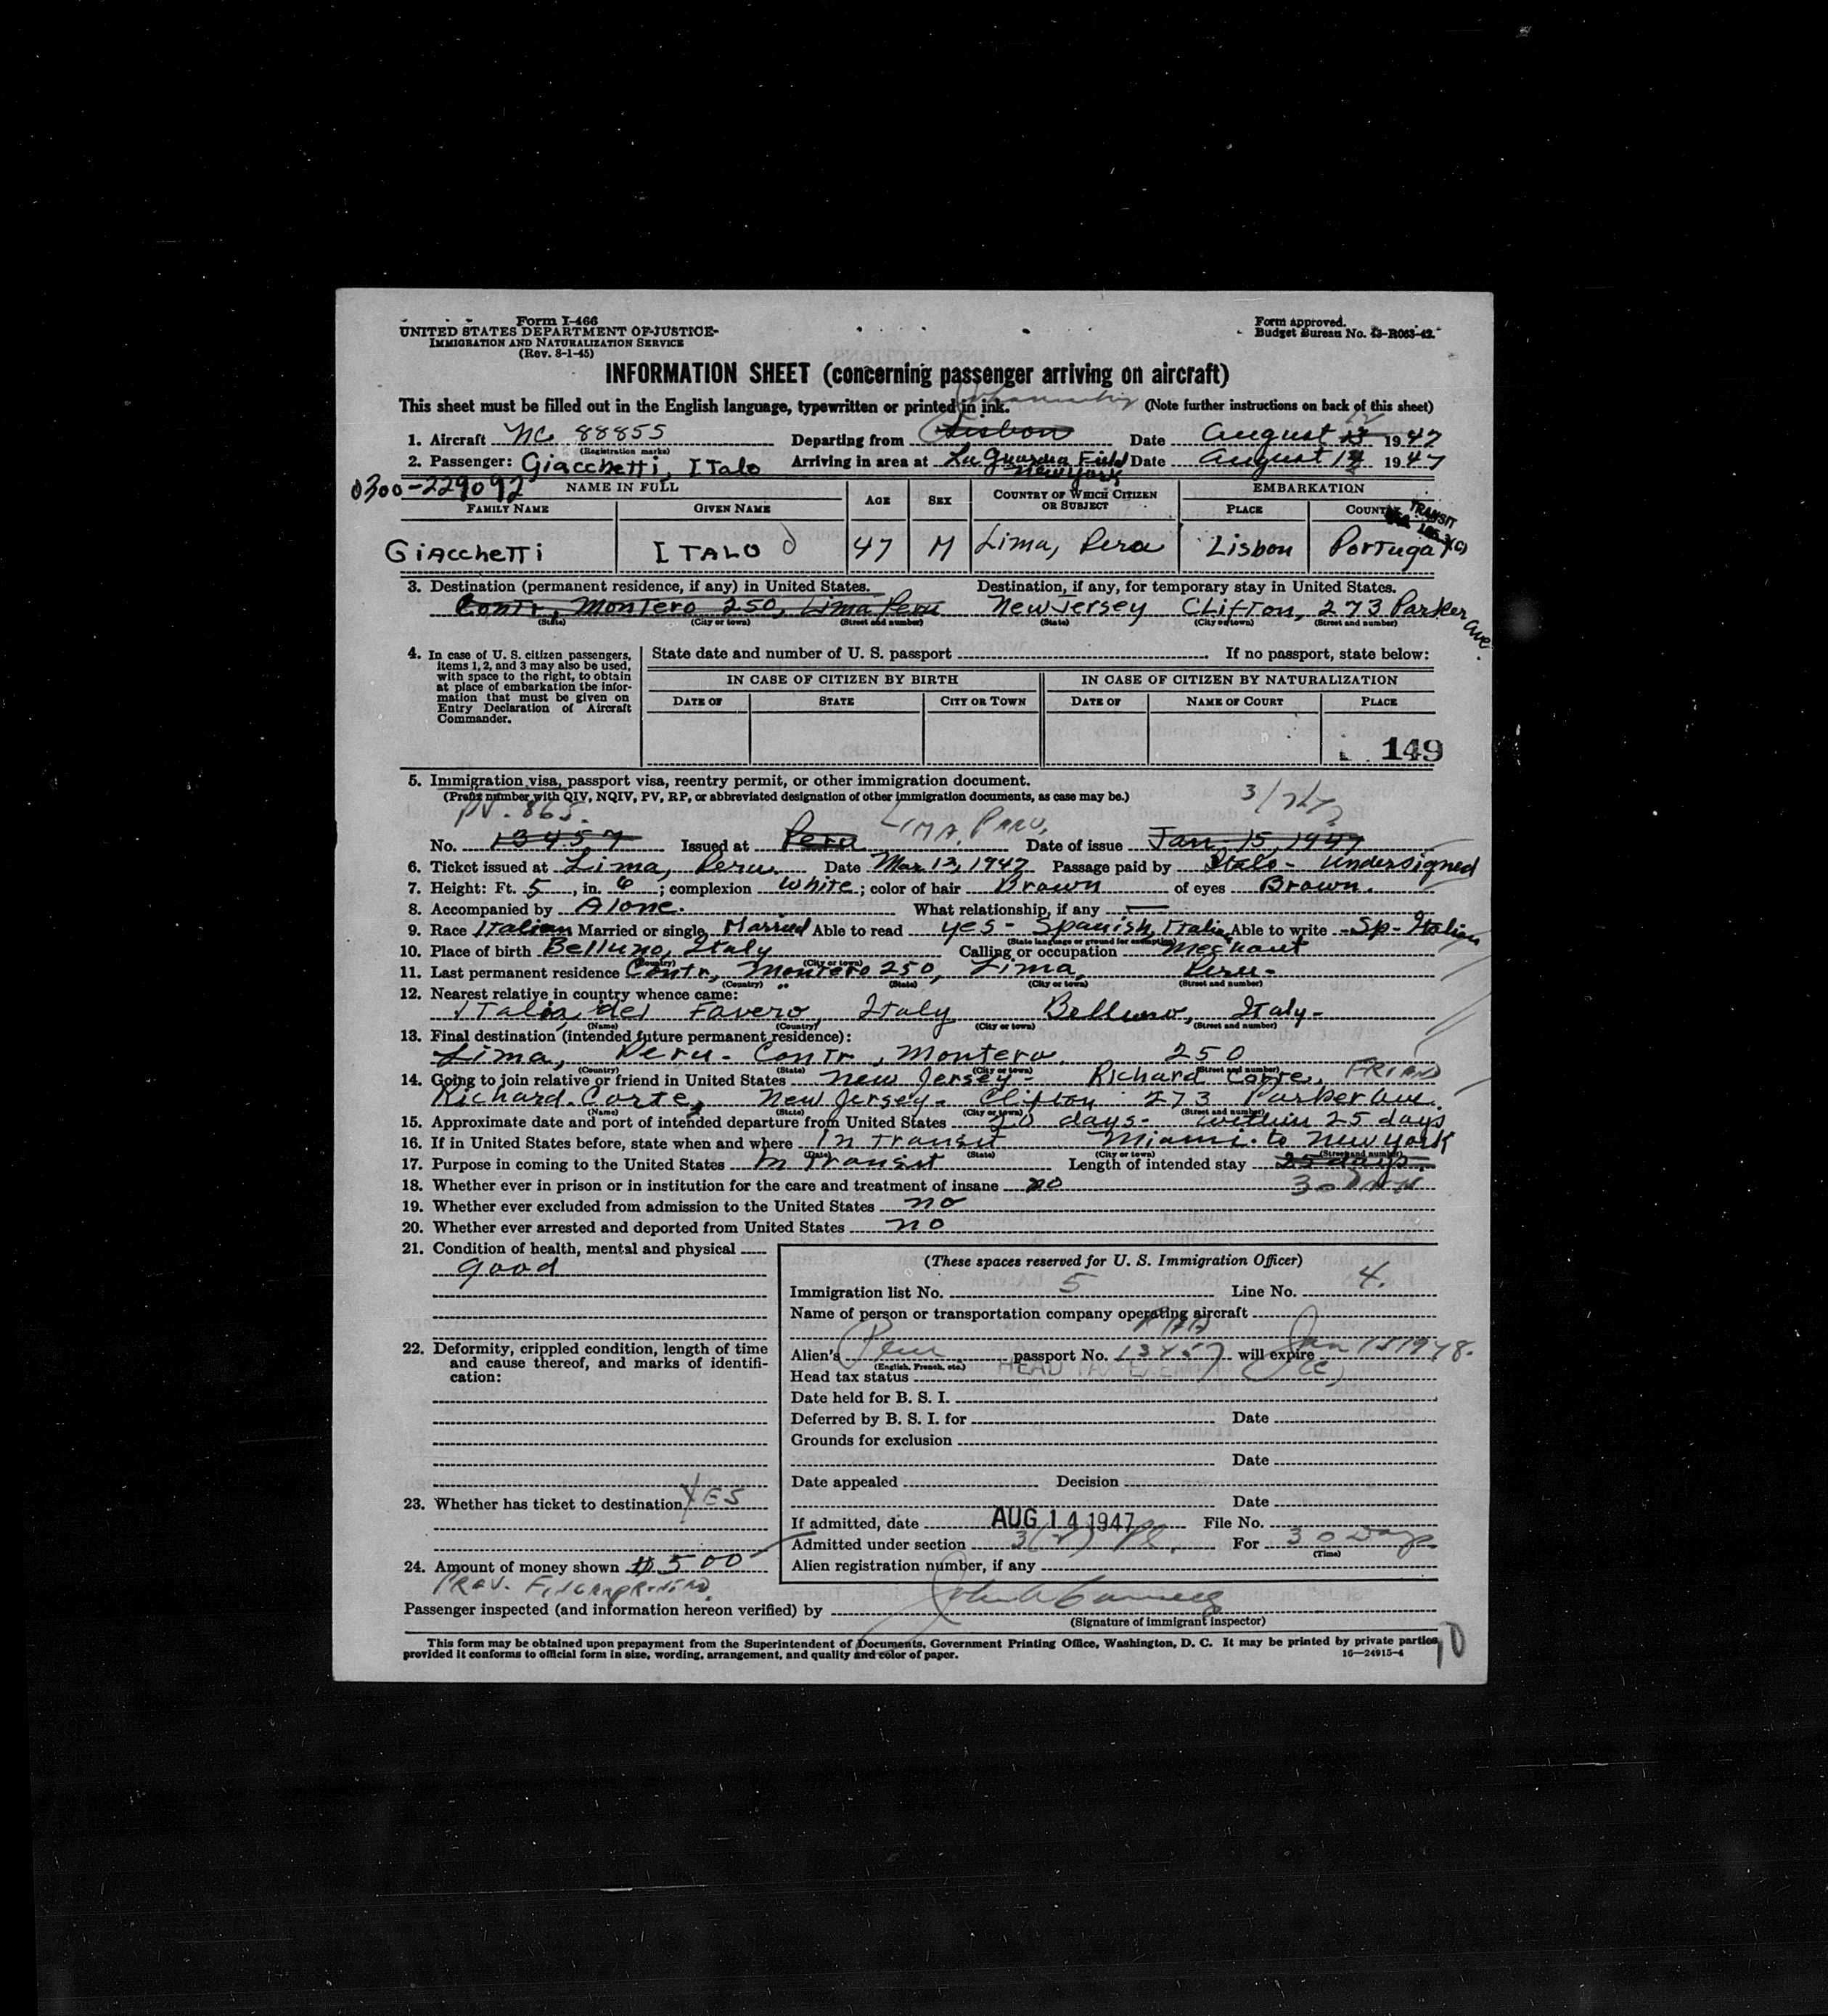 Form I-466
UNITED STATES DEPARTMENT OF JUSTICE
IMMIGRATION AND NATURALIZATION SERVICE
(Rev. 8-1-45)
Form approved.
Budget Bureau No. 43-R063-42.
INFORMATION SHEET (concerning passenger arriving on aircraft)
This sheet must be filled out in the English language, typewritten or printed in ink. (Note further instructions on back of this sheet)
1. Aircraft NC 88855 Departing from Lisbon Date August 13 12 1947
(Registration marks)
2. Passenger: Giacchetti, Italo Arriving in area at La Guardia Field New York Date August 14 1947
0300-229092
NAME IN FULL AGE SEX COUNTRY OF WHICH CITIZEN OR SUBJECT EMBARKATION
FAMILY NAME GIVEN NAME PLACE COUNTRY
TRANSIT
GIAccheTTi ITALO 47 M Lima, Peru Lisbon PorTugal
3. Destination (permanent residence, if any) in United States. Destination, if any, for temporary stay in United States.
Contr, Montero 250, Lima Peru New Jersey Clifton, 273 Parker Ave.
(State) (City or town) (Street and number) (State) (City or town) (Street and number)
4. In case of U. S. citizen passengers, items 1, 2, and 3 may also be used, with space to the right, to obtain at place of embarkation the information that must be given on Entry Declaration of Aircraft Commander.
State date and number of U. S. passport If no passport, state below:
IN CASE OF CITIZEN BY BIRTH IN CASE OF CITIZEN BY NATURALIZATION
DATE OF STATE CITY OR TOWN DATE OF NAME OF COURT PLACE
149
5. Immigration visa, passport visa, reentry permit, or other immigration document.
(Prefix number with QIV, NQIV, PV, RP, or abbreviated designation of other immigration documents, as case may be.)
PV. 865. LIMA. PERU.
No. 13457 Issued at Peru Date of issue Jan, 15, 1947
6. Ticket issued at Lima, Peru. Date Mar 13, 1947 Passage paid by Italo - undersigned
7. Height: Ft. 5, in. 6; complexion White; color of hair Brown of eyes Brown.
8. Accompanied by Alone. What relationship, if any —
9. Race Italian Married or single Married Able to read yes - Spanish, Italian Able to write Sp - Italian
(State language or ground for exemption)
10. Place of birth Belluno, Italy Calling or occupation Mechant
(Country) (City or town)
11. Last permanent residence Contr, Montero 250, Lima, Peru-
(Country) (State) (City or town) (Street and number)
12. Nearest relative in country whence came:
Italia del Favero, Italy Belluno, Italy-
(Name) (Country) (City or town) (Street and number)
13. Final destination (intended future permanent residence):
Lima, Peru- Contr, Montero 250
(Country) (State) (City or town) (Street and number)
14. Going to join relative or friend in United States New Jersey- Richard Corte, FRIEND
Richard Corte, New Jersey- Clifton 273 Parker Ave.
(Name) (State) (City or town) (Street and number)
15. Approximate date and port of intended departure from United States 20 days- within 25 days
16. If in United States before, state when and where In Transit Miami to New York
(Date) (State) (City or town) (Street and number)
17. Purpose in coming to the United States In Transit Length of intended stay 25 days.
18. Whether ever in prison or in institution for the care and treatment of insane no 30 DAYS
19. Whether ever excluded from admission to the United States no
20. Whether ever arrested and deported from United States no
21. Condition of health, mental and physical
good
22. Deformity, crippled condition, length of time and cause thereof, and marks of identification:
23. Whether has ticket to destination YES
24. Amount of money shown $500
PREV. FINGERPRINTED
(These spaces reserved for U. S. Immigration Officer)
Immigration list No. 5 Line No. 4.
Name of person or transportation company operating aircraft
PAA
Alien's Peru passport No. 13457 will expire Jan 15 1948.
(English, French, etc.)
Head tax status HEAD TAX EXEMPT
Date held for B. S. I.
Deferred by B. S. I. for Date
Grounds for exclusion
Date
Date appealed Decision
Date
If admitted, date AUG 14 1947 File No.
Admitted under section 3(2) For 30 Days
(Time)
Alien registration number, if any
Passenger inspected (and information hereon verified) by
(Signature of immigrant inspector)
This form may be obtained upon prepayment from the Superintendent of Documents, Government Printing Office, Washington, D. C. It may be printed by private parties
provided it conforms to official form in size, wording, arrangement, and quality and color of paper. 16—24915-4